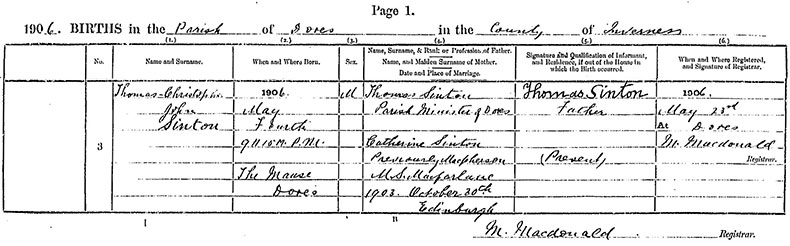 Page 1.
1906. BIRTHS in the Parish of Dores in the County of Inverness
(1.) (2.) (3.) (4.) (5.) (6.)
No. Name and Surname. When and Where Born. Sex. Name, Surname, & Rank or Profession of Father. Name, and Maiden Surname of Mother. Date and Place of Marriage. Signature and Qualification of Informant, and Residence, if out of the House in which the Birth occurred. When and Where Registered, and Signature of Registrar.
Thomas-Christopher 1906 M Thomas Sinton Thomas Sinton 1906.
John May Parish Minister of Dores Father May 23rd
Sinton Fourth At Dores
3 9h. 15m. P.M. Catherine Sinton M. Macdonald
Previously Macpherson (Present) Registrar.
The Manse M.S. Macfarlane
Dores 1903. October 30th
Edinburgh
M. Macdonald Registrar.